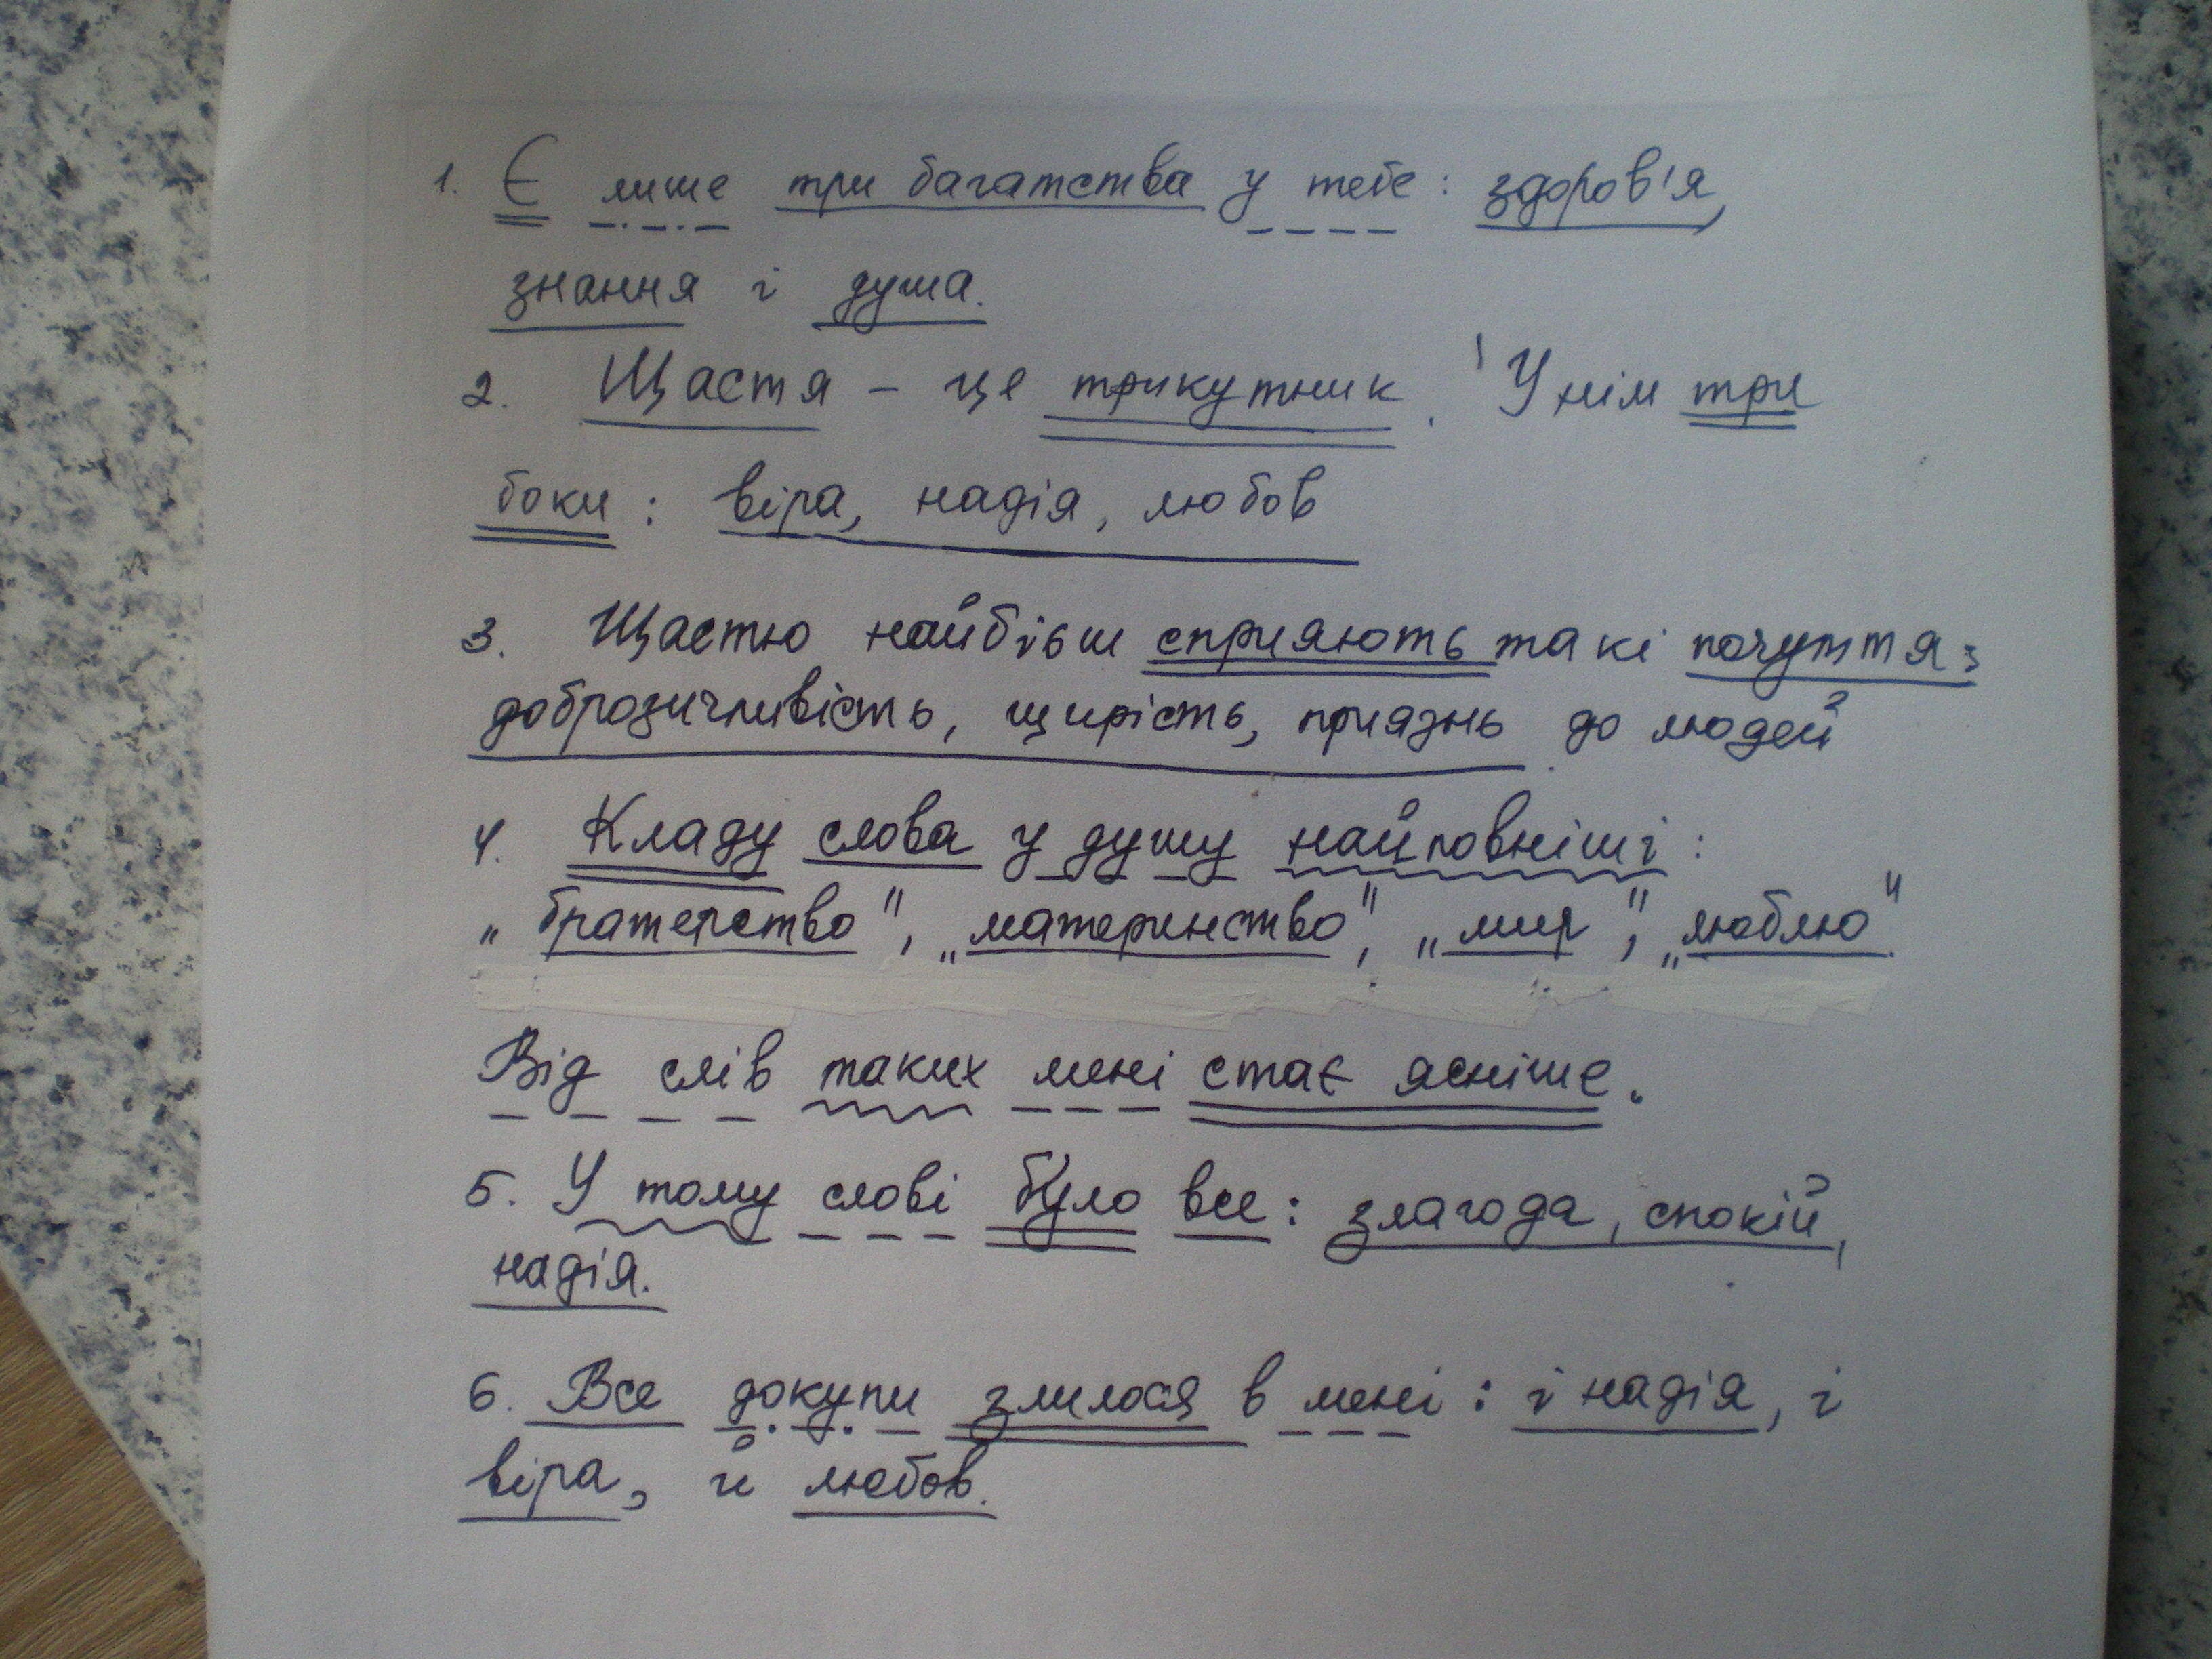 1. Є лише три багатства у тебе: здоров'я,
знання і душа.
2. Щастя – це трикутник. У нім три
боки: віра, надія, любов
3. Щастю найбівш сприяють такі почуття:
доброзичливість, щирість, приязнь до людей
4. Кладу слова у душу найповніші:
„братерство", „материнство", „мир", „люблю".
Від слів таких мені стає ясніше.
5. У тому слові було все: злагода, спокій,
надія.
6. Все докупи злилося в мені: і надія, і
віра, й любов.